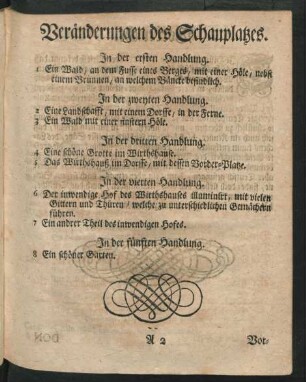 Veränderungen des Schauplatzes.
In der ersten Handlung.
1 Ein Wald, an dem Fusse eines Berges, mit einer Höle, nebst
einem Brunnen, an welchem Bäncke befindlich.
In der zweyten Handlung.
2 Eine Landschafft, mit einem Dorffe, in der Ferne.
3 Ein Wald mit einer finstern Höle.
In der dritten Handlung.
4 Eine schöne Grotte im Wirthshause.
5 Das Wirthshauß im Dorffe, mit dessen Vorder-Platze.
In der vierten Handlung.
6 Der inwendige Hof des Wirthshauses illuminirt, mit vielen
Gittern und Thüren / welche zu unterschiedlichen Gemächern
führen.
7 Ein andrer Theil des inwendigen Hofes.
In der fünften Handlung.
8 Ein schöner Garten.
A 2
Vor-